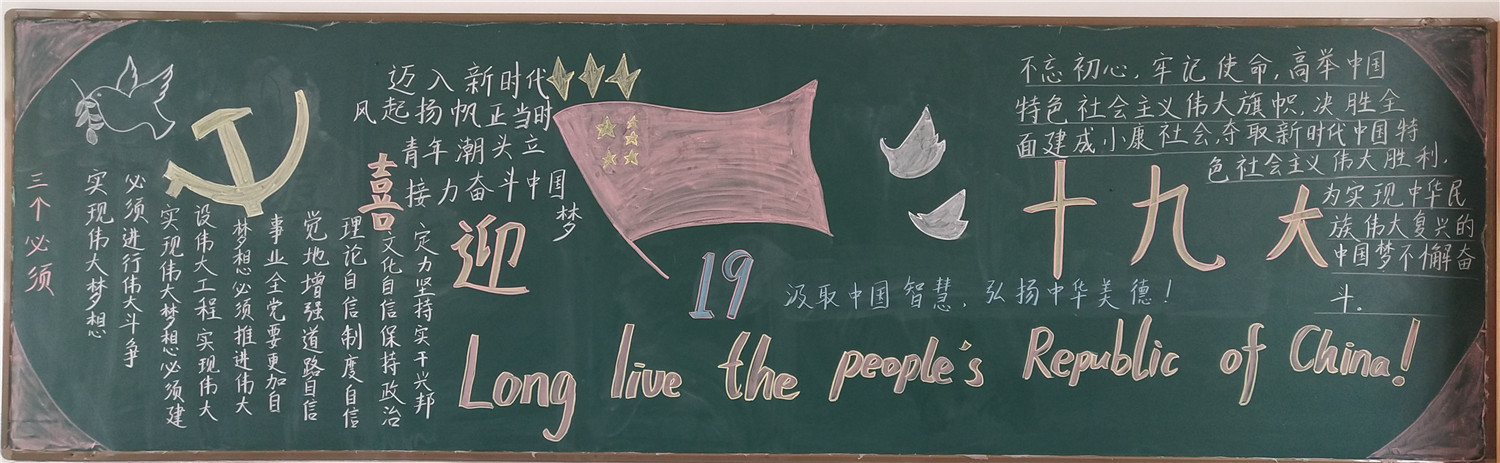 三个必须
实现伟大梦想
必须进行伟大斗争
实现伟大梦想必须建
设伟大工程实现伟大
梦想必须推进伟大
事业全党要更加自
觉地增强道路自信
理论自信制度自信
文化自信保持政治
定力坚持实干兴邦
迈入新时代
风起扬帆正当时
青年潮头立
接力奋斗中国梦
喜迎
十九大
19
汲取中国智慧，弘扬中华美德！
不忘初心，牢记使命，高举中国
特色社会主义伟大旗帜，决胜全
面建成小康社会，夺取新时代中国特
色社会主义伟大胜利，
为实现中华民
族伟大复兴的
中国梦不懈奋
斗。
Long live the people's Republic of China!